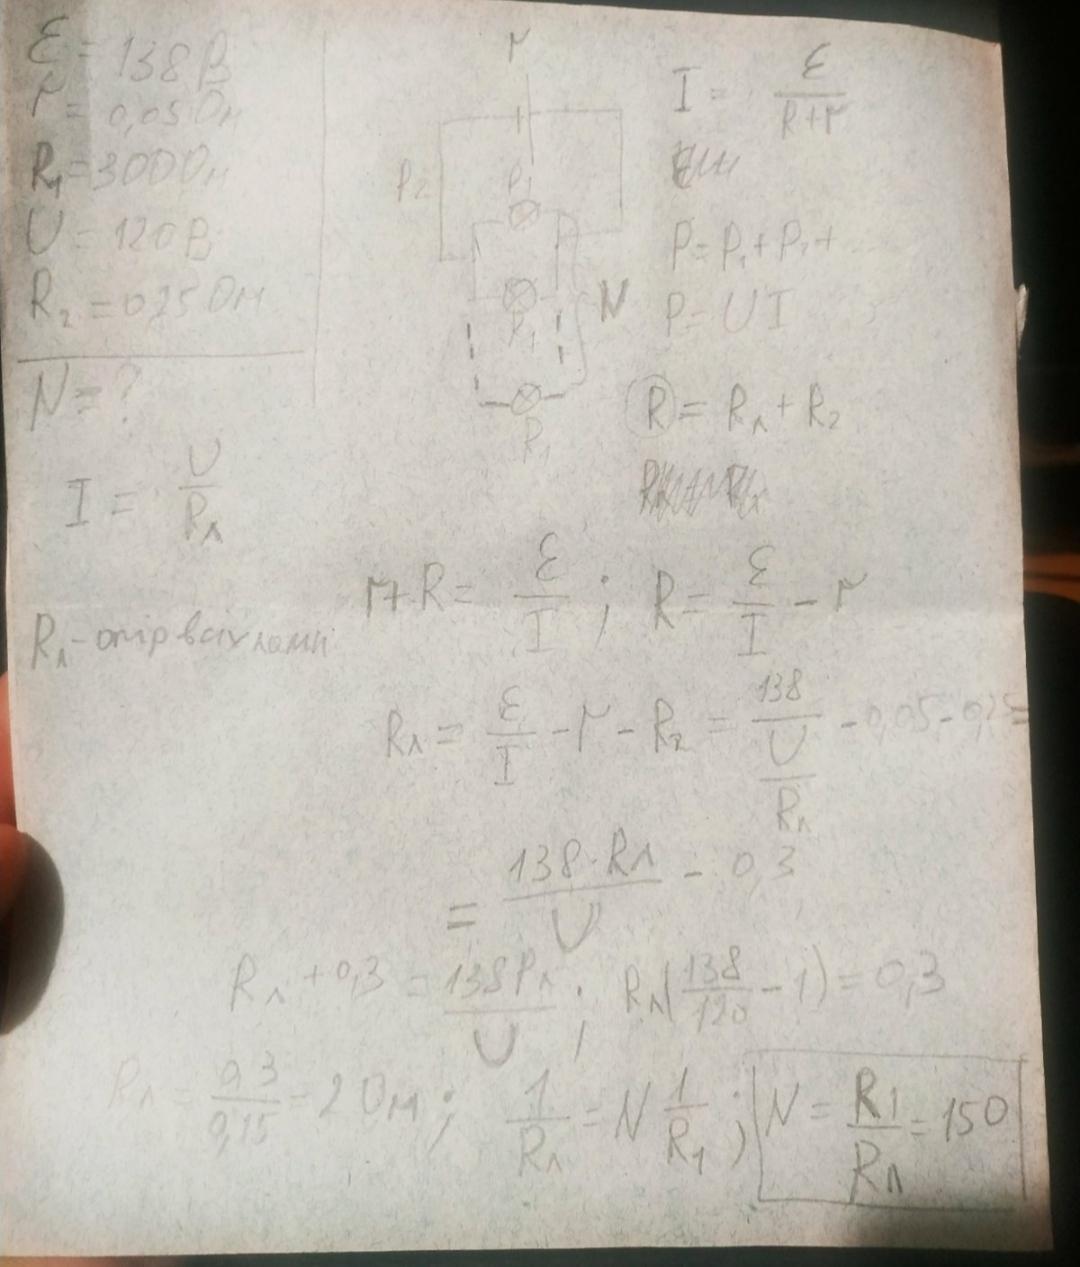 ε = 138 В
r = 0,05 Ом
R₁ = 300 Ом
U = 120 В
R₂ = 0,25 Ом
N = ?
I = U/Rл
Rл - опір всіх ламп
r
R₂
R₁
R₁
N
R₁
I = ε/(R+r)
P = P₁ + P₁ + ...
P = UI
R = Rл + R₂
r + R = ε/I ; R = ε/I - r
Rл = ε/I - r - R₂ = 138/(U/Rл) - 0,05 - 0,25 =
= 138·Rл/U - 0,3
Rл + 0,3 = 138Rл/U ; Rл(138/120 - 1) = 0,3
Rл = 0,3/0,15 = 2 Ом ; 1/Rл = N 1/R₁ ; N = R₁/Rл = 150